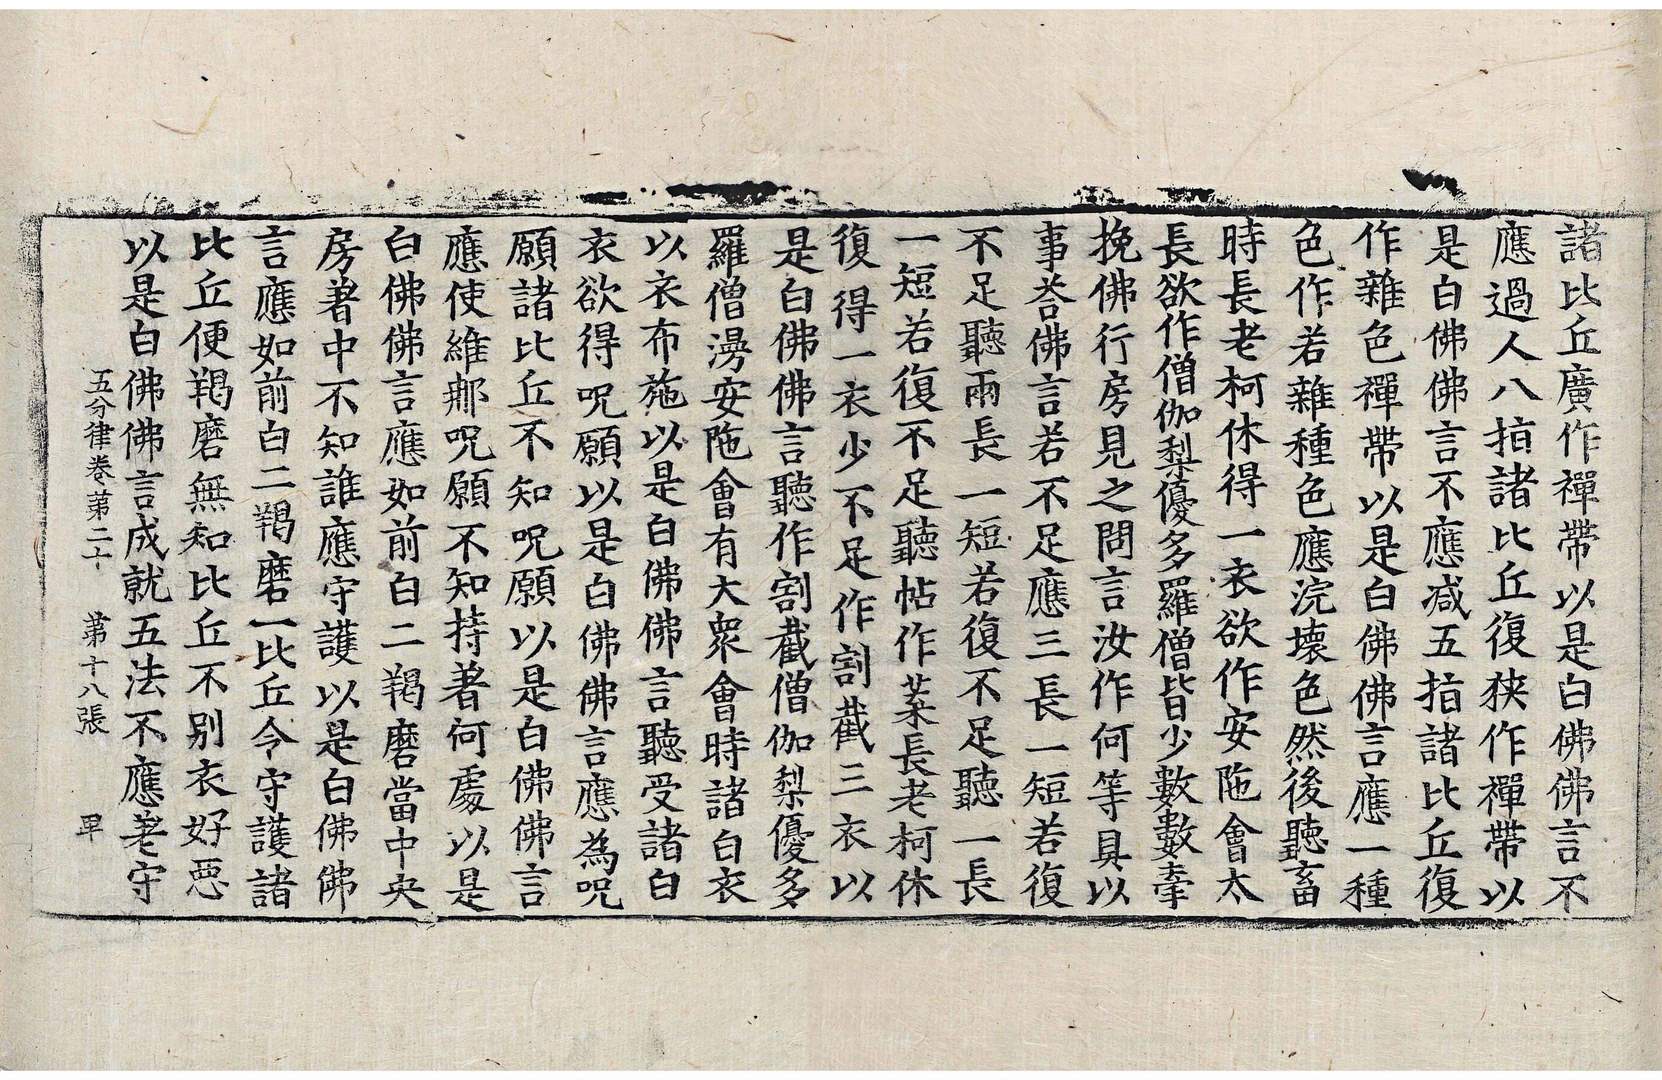 諸比丘廣作禪帶以是白佛佛言不
應過人八指諸比丘復狹作禪帶以
是白佛佛言不應减五指諸比丘復
作雜色禪帶以是白佛佛言應一種
色作若雜種色應浣壞色然後聽畜
時長老柯休得一衣欲作安陁會太
長欲作僧伽梨優多羅僧皆少數數牽
挽佛行房見之問言汝作何等具以
事荅佛言若不足應三長一短若復
不足聽兩長一短若復不足聽一長
一短若復不足聽帖作葉長老柯休
復得一衣少不足作割截三衣以
是白佛佛言聽作割截僧伽梨優多
羅僧漫安陁會有大衆會時諸白衣
以衣布施以是白佛佛言聽受諸白
衣欲得呪願以是白佛佛言應為呪
願諸比丘不知呪願以是白佛佛言
應使維那呪願不知持著何處以是
白佛佛言應如前白二羯磨當中央
房著中不知誰應守護以是白佛佛
言應如前白二羯磨一比丘令守護諸
比丘便羯磨無知比丘不别衣好惡
以是白佛佛言成就五法不應差守
五分律卷第二十 第十八張 早